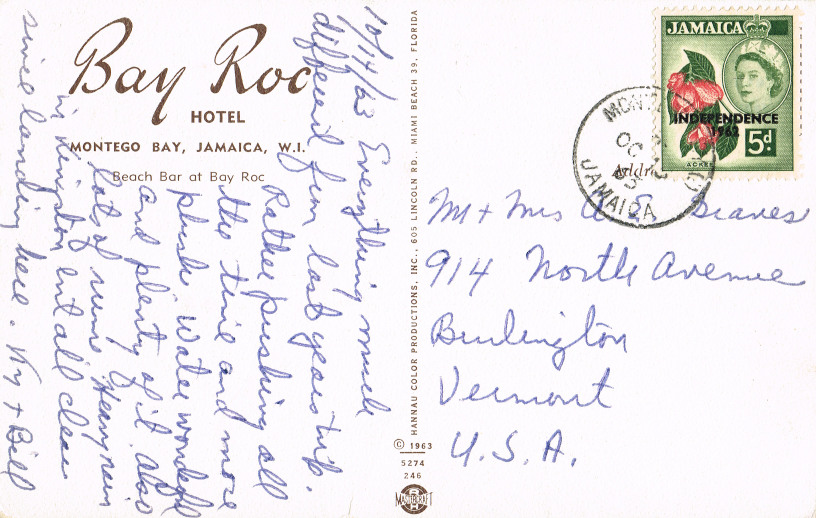 Bay Roc
HOTEL
MONTEGO BAY, JAMAICA, W.I.
Beach Bar at Bay Roc
10/14/63 Everything much
different from last years trip.
Rather pushing all
the time and more
plush. Water wonderful
and plenty of it. Also
lots of rum. Heavy rain
in Kingston but all clear
since landing here. + Bill
HANNAU COLOR PRODUCTIONS, INC., 605 LINCOLN RD., MIAMI BEACH 39, FLORIDA
© 1963
5274
246
MASTERCRAFT
JAMAICA
INDEPENDENCE
1962
5d
ACKEE
OC
63
JAMAICA
Mr + Mrs A. E. Graves
914 North Avenue
Burlington
Vermont
U.S.A.